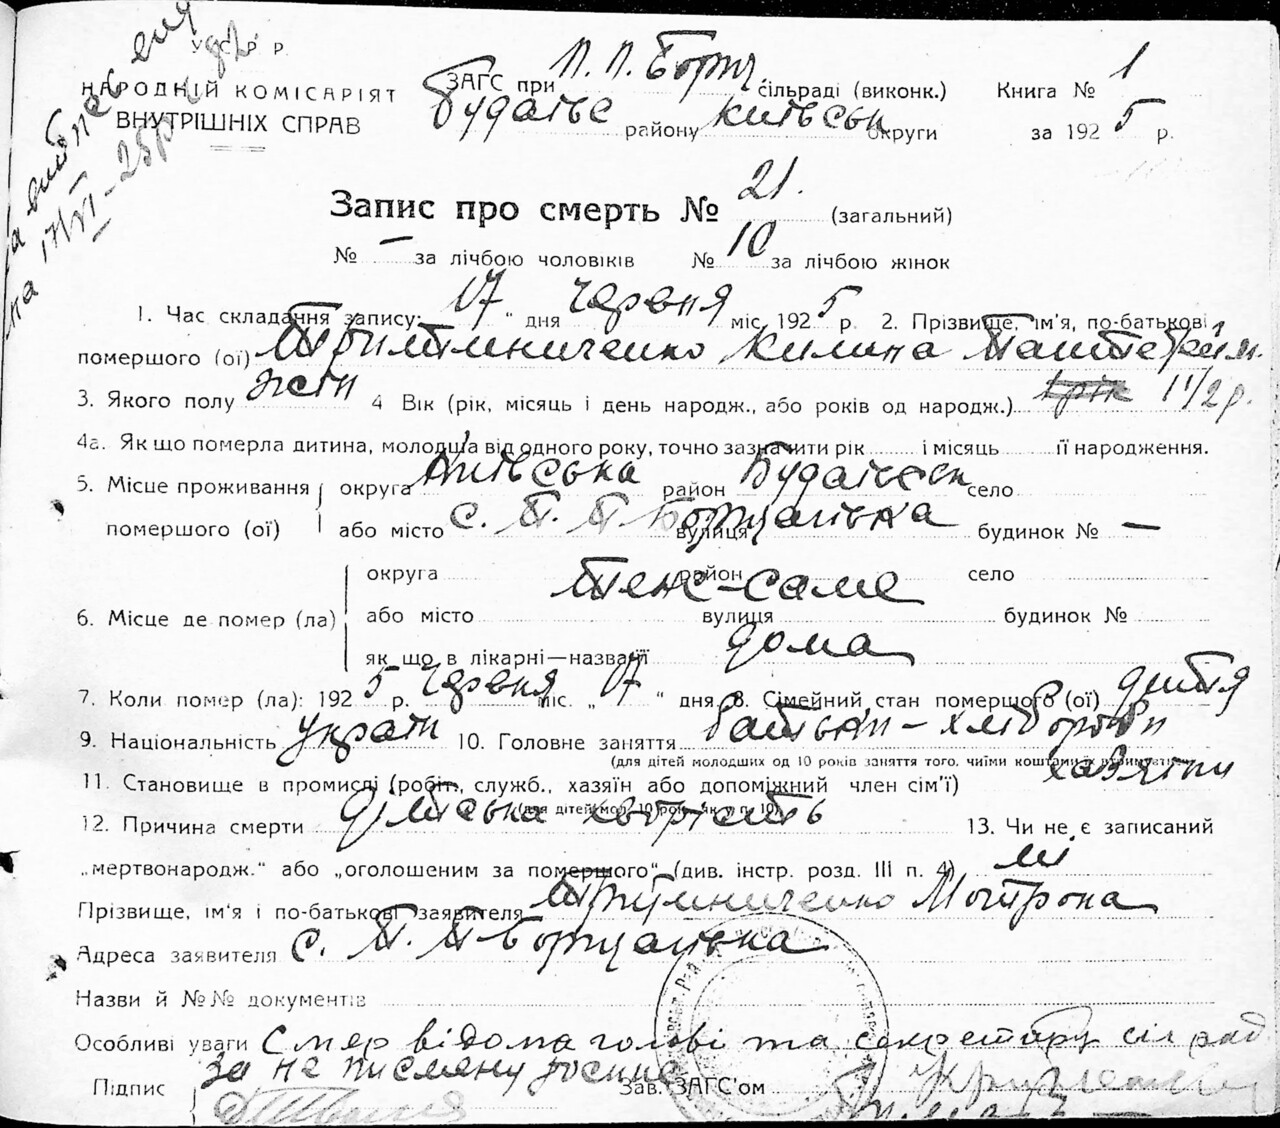 У.С.Р.Р.
НАРОДНІЙ КОМІСАРІЯТ
ВНУТРІШНІХ СПРАВ
ЗАГС при П. П. Борщ. сільраді (виконк.) Книга № 1
Будаївс району Київськ округи за 1925 р.
на 17/VI-25р
Запис про смерть № 21. (загальний)
№ — за лічбою чоловіків № 10 за лічбою жінок
1. Час складання запису: 17 " дня червня міс. 1925 р. 2. Прізвище, ім'я, по-батькові
помершого (ої) Килина
3. Якого полу жін 4 Вік (рік, місяць і день народж., або років од народж.) 1 1/2 р.
4а. Як що померла дитина, молодша від одного року, точно зазначити рік і місяць її народження.
5. Місце проживання округа Київська район Будаївськ село
помершого (ої) або місто с. П. П Борщагівка вулиця будинок № —
округа район село
теж-саме
6. Місце де помер (ла) або місто вулиця будинок №
як що в лікарні—назва її дома
7. Коли помер (ла): 1925 р. червня міс. „ 17 " дня 8. Сімейний стан помершого (ої) дитя
9. Національність україн 10. Головне заняття батьки - хлібороби
(для дітей молодших од 10 років заняття того, чиїми коштами їх утримується)
11. Становище в промислі (робіт., служб., хазяїн або допоміжний член сім'ї) хазяїни
(для дітей мол. 10 рок. як у п. 10)
12. Причина смерті дітська хворість 13. Чи не є записаний
„мертвонародж." або „оголошеним за помершого" (див. інстр. розд. III п. 4) ні
Прізвище, ім'я і по-батькові заявителя Мотрона
Адреса заявителя с. П. П-Борщагівка
Назви й №№ документів
Особливі уваги Смер відома голові та секретару сіл рад
за не писмяну росписа
Підпис Зав. ЗАГС'ом